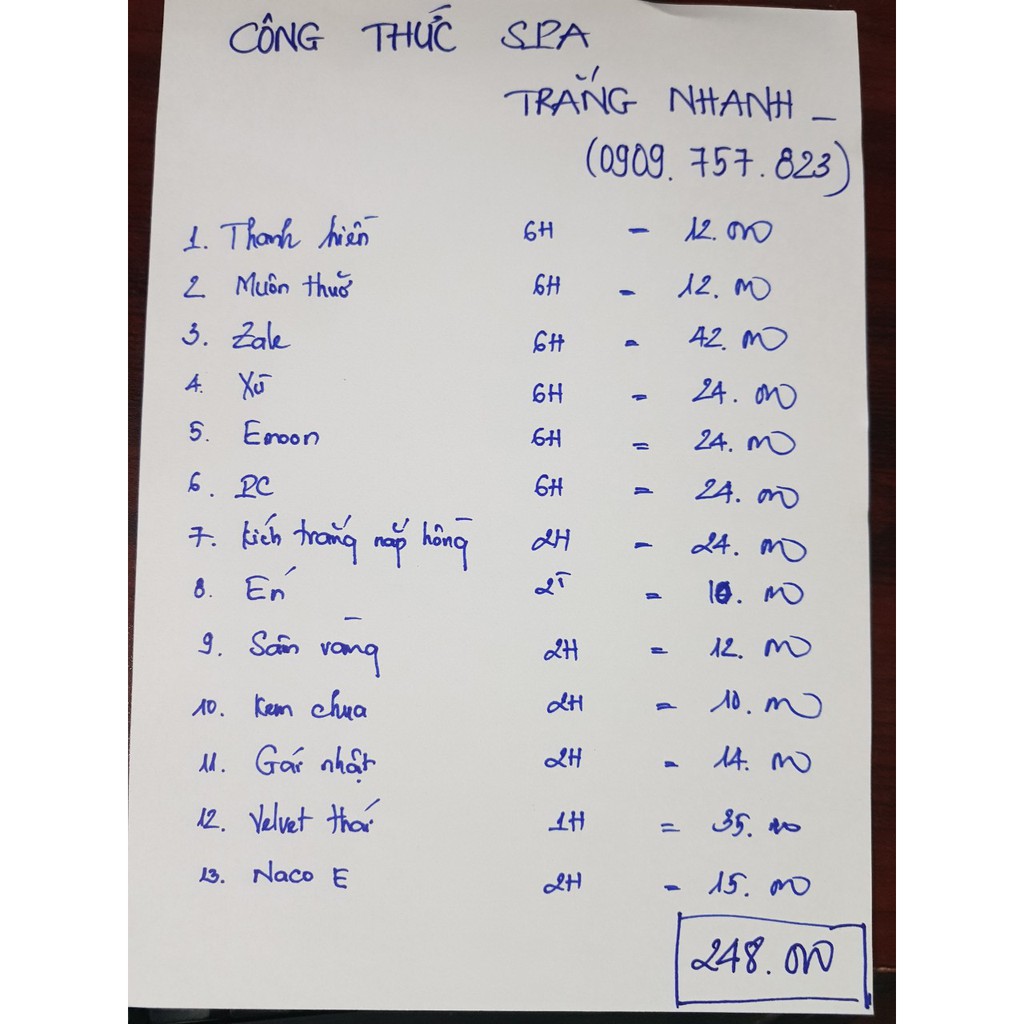 CÔNG THỨC SPA
TRẮNG NHANH -
(0909.757.823)
1. Thanh hiền 6H - 12.000
2 Muôn thuở 6H - 12.000
3. Zale 6H - 42.000
4. Xử 6H - 24.000
5. Enoon 6H = 24.000
6. PC 6H = 24.000
7. kích trắng nắp hồng 2H - 24.000
8. Én 2T = 10.000
9. Sâm vàng 2H = 12.000
10. Kem chua 2H = 10.000
11. Gái nhật 2H - 14.000
12. Velvet thái 1H = 35.000
13. Naco E 2H - 15.000
248.000